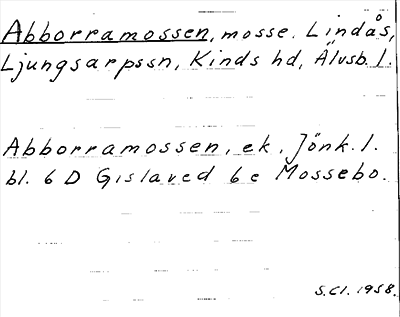 Abborramossen, mosse. Lindås,
Ljungsarpssn, Kinds hd, Älvsb. l.
Abborramossen, ek, Jönk. l.
bl. 6 D Gislaved 6 e Mossebo.
S.Cl. 1958.